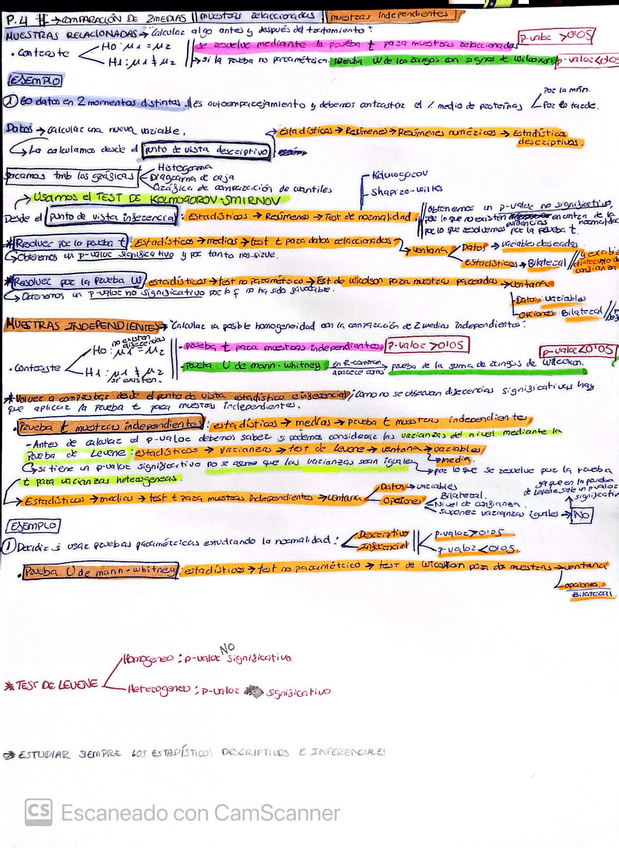 P.4 → COMPARACIÓN DE 2 MEDIAS muestras relacionadas muestras independientes
MUESTRAS RELACIONADAS → Calcular algo antes y después del tratamiento:
p-valor > 0'05
• Contraste
H0: μ1 = μ2
H1: μ1 ≠ μ2
se resuelve mediante la prueba t para muestras relacionadas
si la prueba no paramétrica: prueba U de los rangos con signos de Wilcoxon
p-valor < 0'05
EJEMPLO
① 60 datos en 2 momentos distintos. es autoemparejamiento y debemos contrastar el medio de proteínas
Por la mñn.
Por la tarde.
Datos → calcular una nueva variable.
→ La calculamos desde el punto de vista descriptivo
Estadísticos → Resúmenes → Resúmenes numéricos → Estadística
descriptivas.
tmb las gráficas
Histograma
Diagrama de caja
Gráfica de comparación de cuantiles
→ Usamos el TEST DE KOLMOGOROV-SMIRNOV
Kolmogorov
Shapiro-Wilks
Desde el punto de vista inferencial: Estadísticos → Resúmenes → Test de normalidad
Obtenemos un p-valor no significativo,
por lo que no existen evidencias en contra de la normalidad
por lo que resolvemos por la prueba t.
* Resolver por la prueba t: Estadísticos → medias → test t para datos relacionados → ventana
Datos → variables deseadas
Estadísticas → Bilateral
Obtenemos un p-valor significativo y por tanto nos sirve.
* Resolver por la Prueba W: estadísticos → test no paramétrico → Test de Wilcoxon para muestras pareadas → Ventana
Obtenemos un p-valor no significativo por lo q no ha sido
Datos: variables
Opciones: Bilateral
MUESTRAS INDEPENDIENTES → Calcular la posible homogeneidad con la comparación de 2 medias independientes:
• Contraste
no existen diferencias
H0: μ1 = μ2
H1: μ1 ≠ μ2
si existen.
- prueba t para muestras independientes p-valor > 0'05
- prueba U de mann-whitney en R-commander aparece como prueba de la suma de rangos de Wilcoxon.
p-valor < 0'05
* Volver a comprobar desde el punto de vista estadístico e inferencial; como no se observan diferencias significativas hay
que aplicar la prueba t para muestras independientes.
• Prueba t muestras independientes: estadísticos → medias → prueba t muestras independientes
- Antes de calcular el p-valor debemos saber si podemos considerar las varianzas del nivel mediante la
Prueba de Levene: estadísticos → varianzas → test de Levene → ventana → variables
→ media.
si tiene un p-valor significativo no se asume que las varianzas sean iguales → por lo que se resuelve por la prueba
t para varianzas heterogeneas.
→ Estadísticos → medias → test t para muestras independientes → ventana
Datos → variables
Opciones
Bilateral.
Nivel de confianza.
Suponer varianzas iguales → No
ya que en la prueba
de Levene sale un p-valor
significativo
EJEMPLO
① Decidir si usar pruebas paramétricas estudiando la normalidad:
Descriptivo
Inferencial
p-valor > 0'05
p-valor < 0'05.
• Prueba U de mann-whitney: estadísticos → test no paramétrico → test de Wilcoxon para dos muestras → ventana
opciones
Bilateral.
* TEST DE LEVENE
Homogeneo: p-valor NO significativo
Heterogeneo: p-valor significativo
ESTUDIAR SIEMPRE LOS ESTADÍSTICOS DESCRIPTIVOS E INFERENCIALES
CS Escaneado con CamScanner